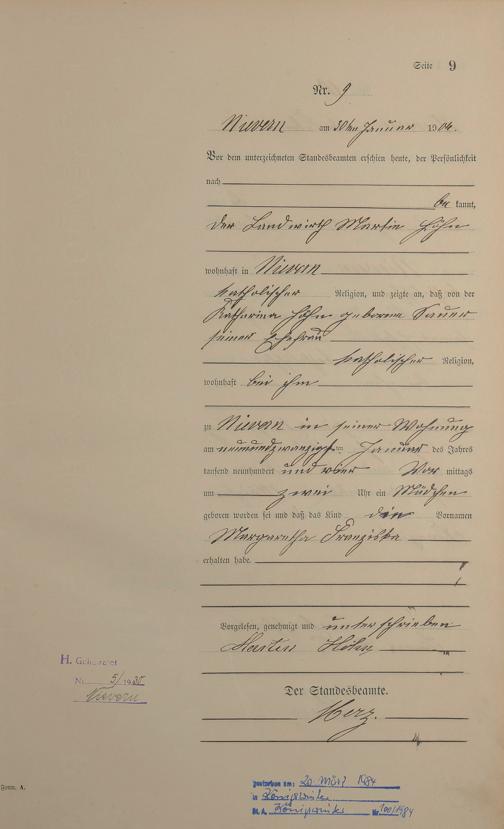 Seite 9
Nr. 9
Nievern am 30ten Januar 1904.
Vor dem unterzeichneten Standesbeamten erschien heute, der Persönlichkeit
nach
be kannt,
der Landwirth Martin Höhn
wohnhaft in Nievern
katholischer Religion, und zeigte an, daß von der
Katharina Höhn geborene Sauer
seiner Ehefrau
katholischer Religion,
wohnhaft bei ihm
zu Nievern in seiner Wohnung
am neunundzwanzigsten Januar des Jahres
tausend neunhundert und vier Vor mittags
um zwei Uhr ein Mädchen
geboren worden sei und daß das Kind die Vornamen
Margaretha Franziska
erhalten habe.
Vorgelesen, genehmigt und unterschrieben
Martin Höhn
Der Standesbeamte.
Herz.
H. Geheiratet
Nr. 5/1930
Nievern
Form. A.
gestorben am: 20 März 1984
in Königswinter
St. A. Königswinter Nr. 100/1984